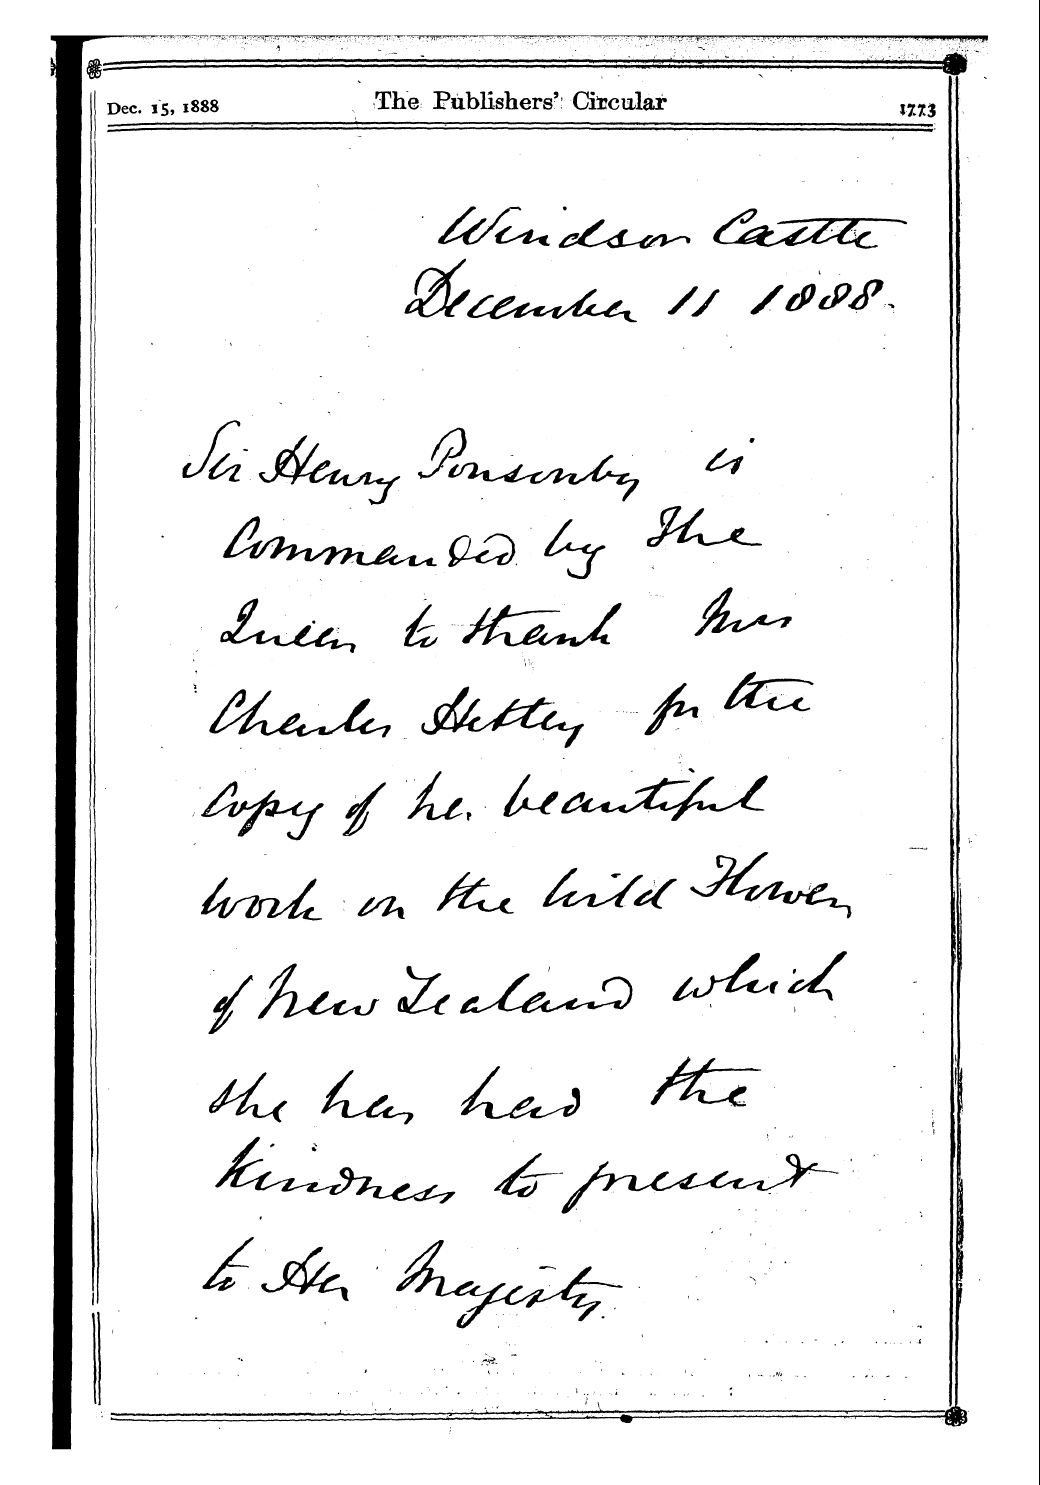 Dec. 15, 1888 The Publishers' Circular 1773
Windsor Castle
December 11 1888.
Sir Henry Ponsonby is
Commanded by The
Queen to thank Mrs
Charles Hetley for the
Copy of her beautiful
work on the wild Flowers
of New Zealand which
she has had the
kindness to present
to Her Majesty.